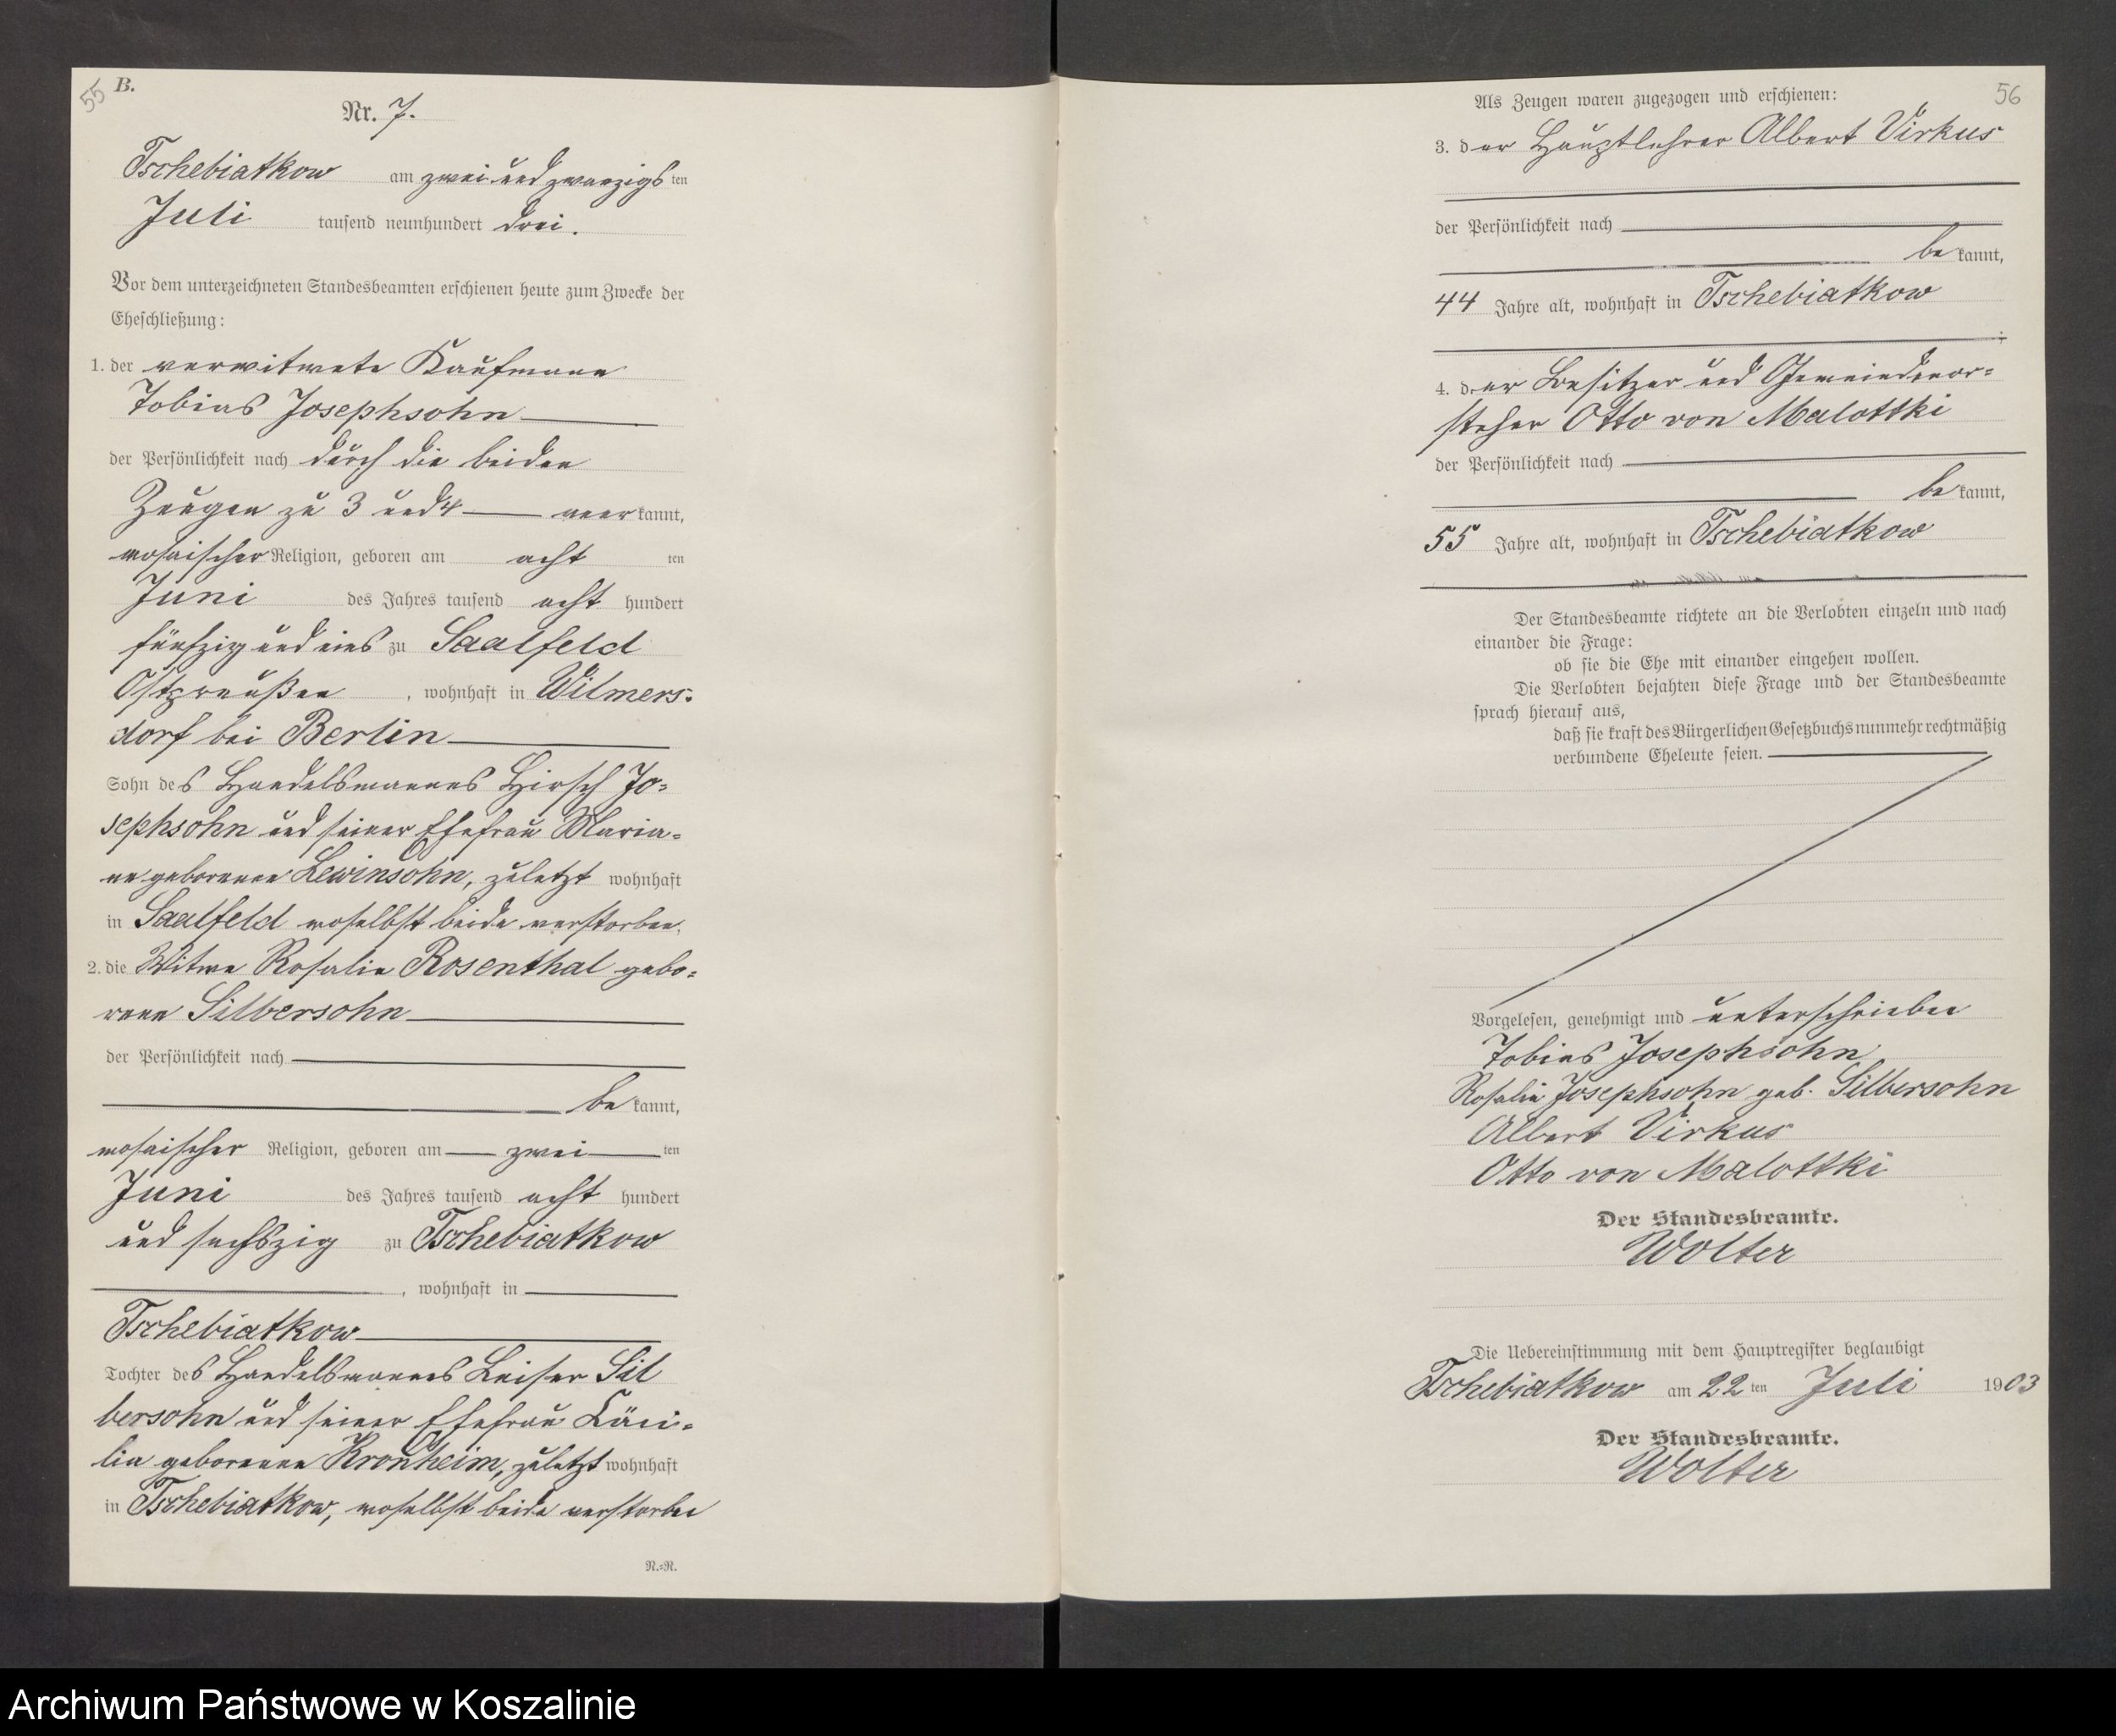 55
B.
Nr. 7.
Tschebiatkow am zwei und zwanzigsten
Juli tausend neunhundert drei.
Vor dem unterzeichneten Standesbeamten erschienen heute zum Zwecke der
Eheschließung:
1. der verwitwete Kaufmann
Tobias Josephsohn
der Persönlichkeit nach durch die beiden
Zeugen zu 3 und 4 anerkannt,
mosaischer Religion, geboren am acht ten
Juni des Jahres tausend acht hundert
fünfzig und eins zu Saalfeld
Ostpreußen, wohnhaft in Wilmers-
dorf bei Berlin
Sohn des Handelsmannes Hirsch Jo-
sephsohn und seiner Ehefrau Maria-
ne geborenen Lewinsohn, zuletzt wohnhaft
in Saalfeld woselbst beide verstorben.
2. die Witwe Rosalie Rosenthal gebo-
rene Silbersohn
der Persönlichkeit nach
bekannt,
mosaischer Religion, geboren am zwei ten
Juni des Jahres tausend acht hundert
und sechszig zu Tschebiatkow
, wohnhaft in
Tschebiatkow
Tochter des Handelsmannes Leiser Sil
bersohn und seiner Ehefrau Cäci-
lie geborenen Kronheim, zuletzt wohnhaft
in Tschebiatkow, woselbst beide verstorben
N.=N.
56
Als Zeugen waren zugezogen und erschienen:
3. der Hauptlehrer Albert Virkus
der Persönlichkeit nach
bekannt,
44 Jahre alt, wohnhaft in Tschebiatkow
;
4. der Besitzer und Gemeindevor-
steher Otto von Malottki
der Persönlichkeit nach
bekannt,
55 Jahre alt, wohnhaft in Tschebiatkow
Der Standesbeamte richtete an die Verlobten einzeln und nach
einander die Frage:
ob sie die Ehe mit einander eingehen wollen.
Die Verlobten bejahten diese Frage und der Standesbeamte
sprach hierauf aus,
daß sie kraft des Bürgerlichen Gesetzbuchs nunmehr rechtmäßig
verbundene Eheleute seien.
Vorgelesen, genehmigt und unterschrieben
Tobias Josephsohn
Rosalie Josephsohn geb. Silbersohn
Albert Virkus
Otto von Malottki
Der Standesbeamte.
Wolter
Die Uebereinstimmung mit dem Hauptregister beglaubigt
Tschebiatkow am 22 ten Juli 1903
Der Standesbeamte.
Wolter
Archiwum Państwowe w Koszalinie